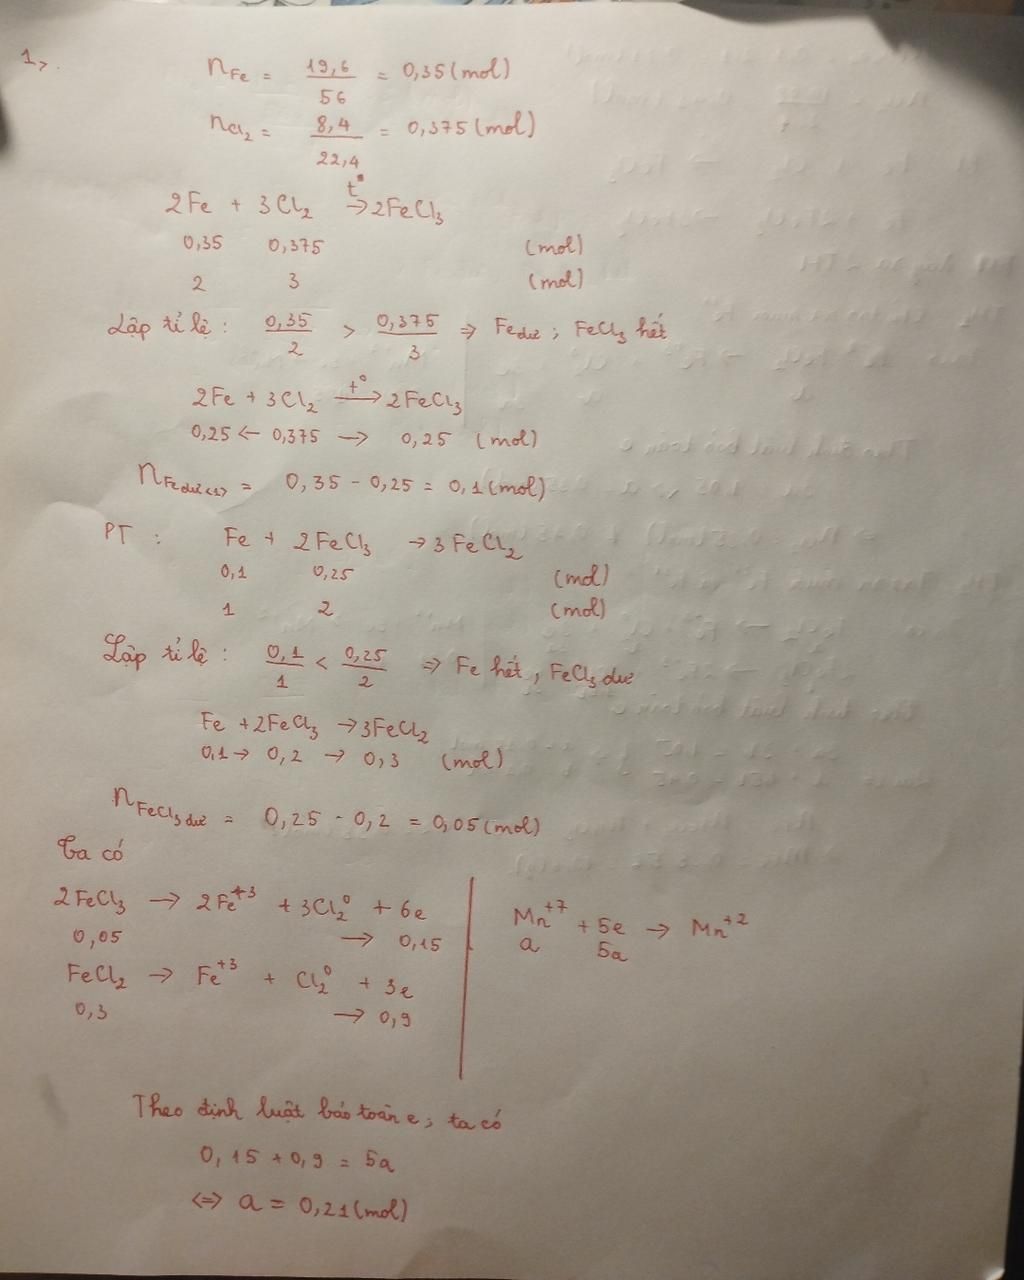 1>.
nFe = 19,6/56 = 0,35 (mol)
nCl₂ = 8,4/22,4 = 0,375 (mol)
2Fe + 3Cl₂ t° → 2FeCl₃
0,35 0,375 (mol)
2 3 (mol)
Lập tỉ lệ : 0,35/2 > 0,375/3 ⇒ Fe dư ; FeCl₃ hết
2Fe + 3Cl₂ t° → 2FeCl₃
0,25 ← 0,375 → 0,25 (mol)
nFe dư <1> = 0,35 - 0,25 = 0,1 (mol)
PT : Fe + 2FeCl₃ → 3FeCl₂
0,1 0,25 (mol)
1 2 (mol)
Lập tỉ lệ : 0,1/1 < 0,25/2 ⇒ Fe hết, FeCl₃ dư
Fe + 2FeCl₃ → 3FeCl₂
0,1 → 0,2 → 0,3 (mol)
nFeCl₃ dư = 0,25 - 0,2 = 0,05 (mol)
Ta có
2FeCl₃ → 2Fe⁺³ + 3Cl₂⁰ + 6e
0,05 → 0,15
FeCl₂ → Fe⁺³ + Cl₂⁰ + 3e
0,3 → 0,9
Mn⁺⁷ + 5e → Mn⁺²
a 5a
Theo định luật bảo toàn e; ta có
0,15 + 0,9 = 5a
⇔ a = 0,21 (mol)